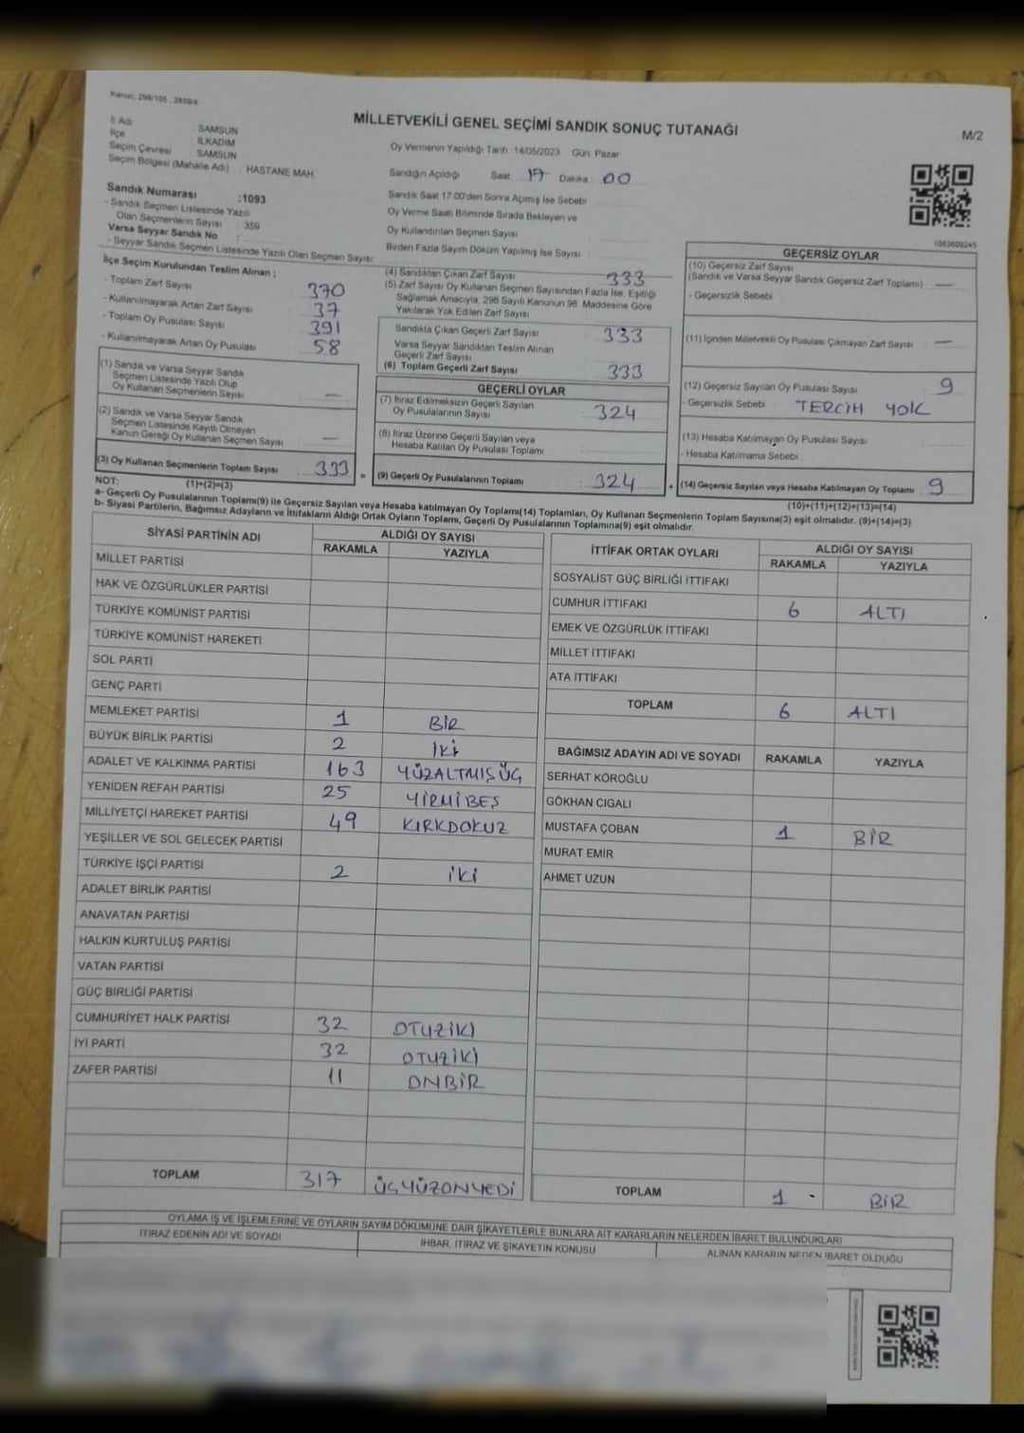 Kanun: 298/105, 2839/4
MİLLETVEKİLİ GENEL SEÇİMİ SANDIK SONUÇ TUTANAĞI
M/2
İl Adı SAMSUN
İlçe İLKADIM
Seçim Çevresi SAMSUN
Seçim Bölgesi (Mahalle Adı) : HASTANE MAH.
Oy Vermenin Yapıldığı Tarih :14/05/2023 Gün: Pazar
Sandığın Açıldığı Saat: 17 Dakika: 00
Sandık Saat 17:00'den Sonra Açılmış İse Sebebi
Oy Verme Saati Bitiminde Sırada Bekleyen ve
Oy Kullandırılan Seçmen Sayısı
Birden Fazla Sayım Döküm Yapılmış İse Sayısı
Sandık Numarası :1093
- Sandık Seçmen Listesinde Yazılı
Olan Seçmenlerin Sayısı : 359
Varsa Seyyar Sandık No
- Seyyar Sandık Seçmen Listesinde Yazılı Olan Seçmen Sayısı:
İlçe Seçim Kurulundan Teslim Alınan ;
- Toplam Zarf Sayısı 370
- Kullanılmayarak Artan Zarf Sayısı 37
- Toplam Oy Pusulası Sayısı 391
- Kullanılmayarak Artan Oy Pusulası 58
(1) Sandık ve Varsa Seyyar Sandık
Seçmen Listesinde Yazılı Olup
Oy Kullanan Seçmenlerin Sayısı —
(2) Sandık ve Varsa Seyyar Sandık
Seçmen Listesinde Kayıtlı Olmayan
Kanun Gereği Oy Kullanan Seçmen Sayısı —
(3) Oy Kullanan Seçmenlerin Toplam Sayısı 333
(1)+(2)=(3)
(4) Sandıktan Çıkan Zarf Sayısı 333
(5) Zarf Sayısı Oy Kullanan Seçmen Sayısından Fazla İse, Eşitliği
Sağlamak Amacıyla, 298 Sayılı Kanunun 98. Maddesine Göre
Yakılarak Yok Edilen Zarf Sayısı
Sandıkta Çıkan Geçerli Zarf Sayısı 333
Varsa Seyyar Sandıktan Teslim Alınan
Geçerli Zarf Sayısı
(6) Toplam Geçerli Zarf Sayısı 333
GEÇERLİ OYLAR
(7) İtiraz Edilmeksizin Geçerli Sayılan
Oy Pusulalarının Sayısı 324
(8) İtiraz Üzerine Geçerli Sayılan veya
Hesaba Katılan Oy Pusulası Toplamı
= (9) Geçerli Oy Pusulalarının Toplamı 324
1093609245
GEÇERSİZ OYLAR
(10) Geçersiz Zarf Sayısı
(Sandık ve Varsa Seyyar Sandık Geçersiz Zarf Toplamı) —
- Geçersizlik Sebebi
(11) İçinden Milletvekili Oy Pusulası Çıkmayan Zarf Sayısı —
(12) Geçersiz Sayılan Oy Pusulası Sayısı 9
- Geçersizlik Sebebi TERCİH YOK
(13) Hesaba Katılmayan Oy Pusulası Sayısı
- Hesaba Katılmama Sebebi
+ (14) Geçersiz Sayılan veya Hesaba Katılmayan Oy Toplamı 9
(10)+(11)+(12)+(13)=(14)
NOT:
a- Geçerli Oy Pusulalarının Toplamı(9) ile Geçersiz Sayılan veya Hesaba katılmayan Oy Toplamı(14) Toplamları, Oy Kullanan Seçmenlerin Toplam Sayısına(3) eşit olmalıdır. (9)+(14)=(3)
b- Siyasi Partilerin, Bağımsız Adayların ve İttifakların Aldığı Ortak Oyların Toplamı, Geçerli Oy Pusulalarının Toplamına(9) eşit olmalıdır.
SİYASİ PARTİNİN ADI ALDIĞI OY SAYISI
RAKAMLA YAZIYLA
MİLLET PARTİSİ
HAK VE ÖZGÜRLÜKLER PARTİSİ
TÜRKİYE KOMÜNİST PARTİSİ
TÜRKİYE KOMÜNİST HAREKETİ
SOL PARTİ
GENÇ PARTİ
MEMLEKET PARTİSİ 1 BİR
BÜYÜK BİRLİK PARTİSİ 2 İKİ
ADALET VE KALKINMA PARTİSİ 163 YÜZALTMIŞÜÇ
YENİDEN REFAH PARTİSİ 25 YİRMİBEŞ
MİLLİYETÇİ HAREKET PARTİSİ 49 KIRKDOKUZ
YEŞİLLER VE SOL GELECEK PARTİSİ
TÜRKİYE İŞÇİ PARTİSİ 2 İKİ
ADALET BİRLİK PARTİSİ
ANAVATAN PARTİSİ
HALKIN KURTULUŞ PARTİSİ
VATAN PARTİSİ
GÜÇ BİRLİĞİ PARTİSİ
CUMHURİYET HALK PARTİSİ 32 OTUZİKİ
İYİ PARTİ 32 OTUZİKİ
ZAFER PARTİSİ 11 ONBİR
TOPLAM 317 ÜÇYÜZONYEDİ
İTTİFAK ORTAK OYLARI ALDIĞI OY SAYISI
RAKAMLA YAZIYLA
SOSYALİST GÜÇ BİRLİĞİ İTTİFAKI
CUMHUR İTTİFAKI 6 ALTI
EMEK VE ÖZGÜRLÜK İTTİFAKI
MİLLET İTTİFAKI
ATA İTTİFAKI
TOPLAM 6 ALTI
BAĞIMSIZ ADAYIN ADI VE SOYADI RAKAMLA YAZIYLA
SERHAT KÖROĞLU
GÖKHAN CIGALI
MUSTAFA ÇOBAN 1 BİR
MURAT EMİR
AHMET UZUN
TOPLAM 1 BİR
OYLAMA İŞ VE İŞLEMLERİNE VE OYLARIN SAYIM DÖKÜMÜNE DAİR ŞİKAYETLERLE BUNLARA AİT KARARLARIN NELERDEN İBARET BULUNDUKLARI
İTİRAZ EDENİN ADI VE SOYADI İHBAR, İTİRAZ VE ŞİKAYETİN KONUSU ALINAN KARARIN NEDEN İBARET OLDUĞU